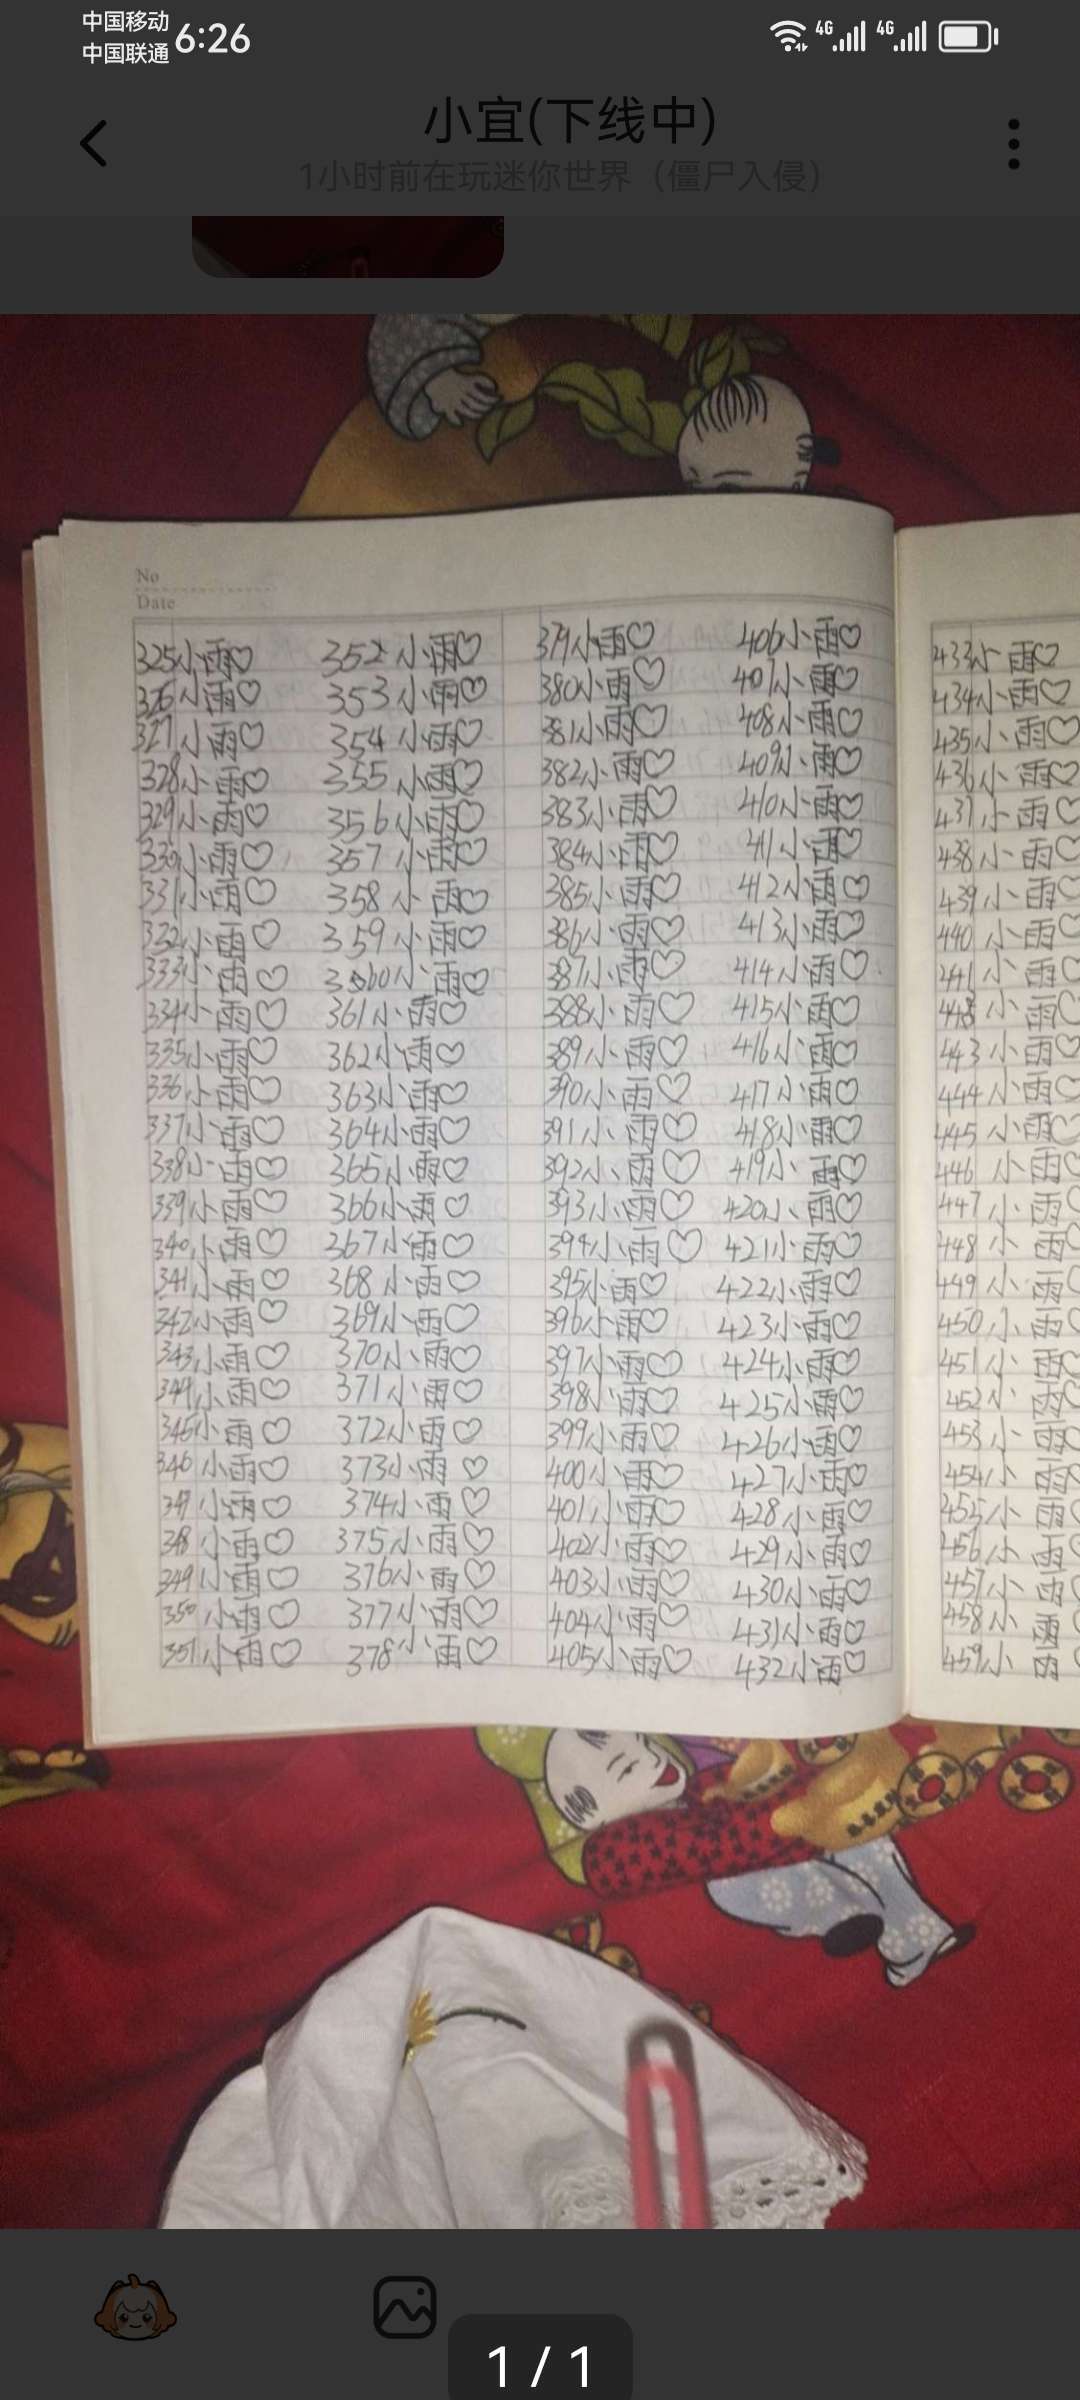 中国移动
中国联通
6:26
4G
4G
小宜(下线中)
1小时前在玩迷你世界（僵尸入侵）
No
Date
325小雨♡
326小雨♡
327小雨♡
328小雨♡
329小雨♡
330小雨♡
331小雨♡
332小雨♡
333小雨♡
334小雨♡
335小雨♡
336小雨♡
337小雨♡
338小雨♡
339小雨♡
340小雨♡
341小雨♡
342小雨♡
343小雨♡
344小雨♡
345小雨♡
346小雨♡
347小雨♡
348小雨♡
349小雨♡
350小雨♡
351小雨♡
352小雨♡
353小雨♡
354小雨♡
355小雨♡
356小雨♡
357小雨♡
358小雨♡
359小雨♡
360小雨♡
361小雨♡
362小雨♡
363小雨♡
364小雨♡
365小雨♡
366小雨♡
367小雨♡
368小雨♡
369小雨♡
370小雨♡
371小雨♡
372小雨♡
373小雨♡
374小雨♡
375小雨♡
376小雨♡
377小雨♡
378小雨♡
379小雨♡
380小雨♡
381小雨♡
382小雨♡
383小雨♡
384小雨♡
385小雨♡
386小雨♡
387小雨♡
388小雨♡
389小雨♡
390小雨♡
391小雨♡
392小雨♡
393小雨♡
394小雨♡
395小雨♡
396小雨♡
397小雨♡
398小雨♡
399小雨♡
400小雨♡
401小雨♡
402小雨♡
403小雨♡
404小雨♡
405小雨♡
406小雨♡
407小雨♡
408小雨♡
409小雨♡
410小雨♡
411小雨♡
412小雨♡
413小雨♡
414小雨♡
415小雨♡
416小雨♡
417小雨♡
418小雨♡
419小雨♡
420小雨♡
421小雨♡
422小雨♡
423小雨♡
424小雨♡
425小雨♡
426小雨♡
427小雨♡
428小雨♡
429小雨♡
430小雨♡
431小雨♡
432小雨♡
433小雨♡
434小雨♡
435小雨♡
436小雨♡
437小雨♡
438小雨♡
439小雨♡
440小雨♡
441小雨♡
小雨♡
443小雨♡
444小雨♡
445小雨♡
446小雨♡
447小雨♡
448小雨♡
449小雨♡
450小雨♡
451小雨♡
452小雨♡
453小雨♡
454小雨♡
455小雨♡
456小雨♡
457小雨♡
458小雨
459小雨
1 / 1